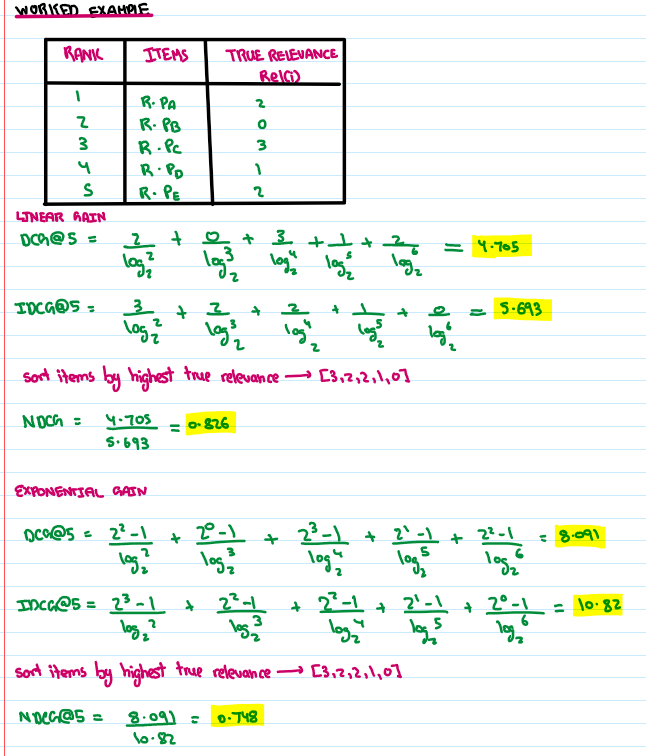 WORKED EXAMPLE
RANK ITEMS TRUE RELEVANCE
Rel(i)
1 R.PA 2
2 R.PB 0
3 R.PC 3
4 R.PD 1
5 R.PE 2
LINEAR GAIN
DCG@5 = 2/log₂2 + 0/log₂3 + 3/log₂4 + 1/log₂5 + 2/log₂6 = 4.705
IDCG@5 = 3/log₂2 + 2/log₂3 + 2/log₂4 + 1/log₂5 + 0/log₂6 = 5.693
sort items by highest true relevance → [3,2,2,1,0]
NDCG = 4.705/5.693 = 0.826
EXPONENTIAL GAIN
DCG@5 = 2²-1/log₂2 + 2⁰-1/log₂3 + 2³-1/log₂4 + 2¹-1/log₂5 + 2²-1/log₂6 = 8.091
IDCG@5 = 2³-1/log₂2 + 2²-1/log₂3 + 2²-1/log₂4 + 2¹-1/log₂5 + 2⁰-1/log₂6 = 10.82
sort items by highest true relevance → [3,2,2,1,0]
NDCG@5 = 8.091/10.82 = 0.748